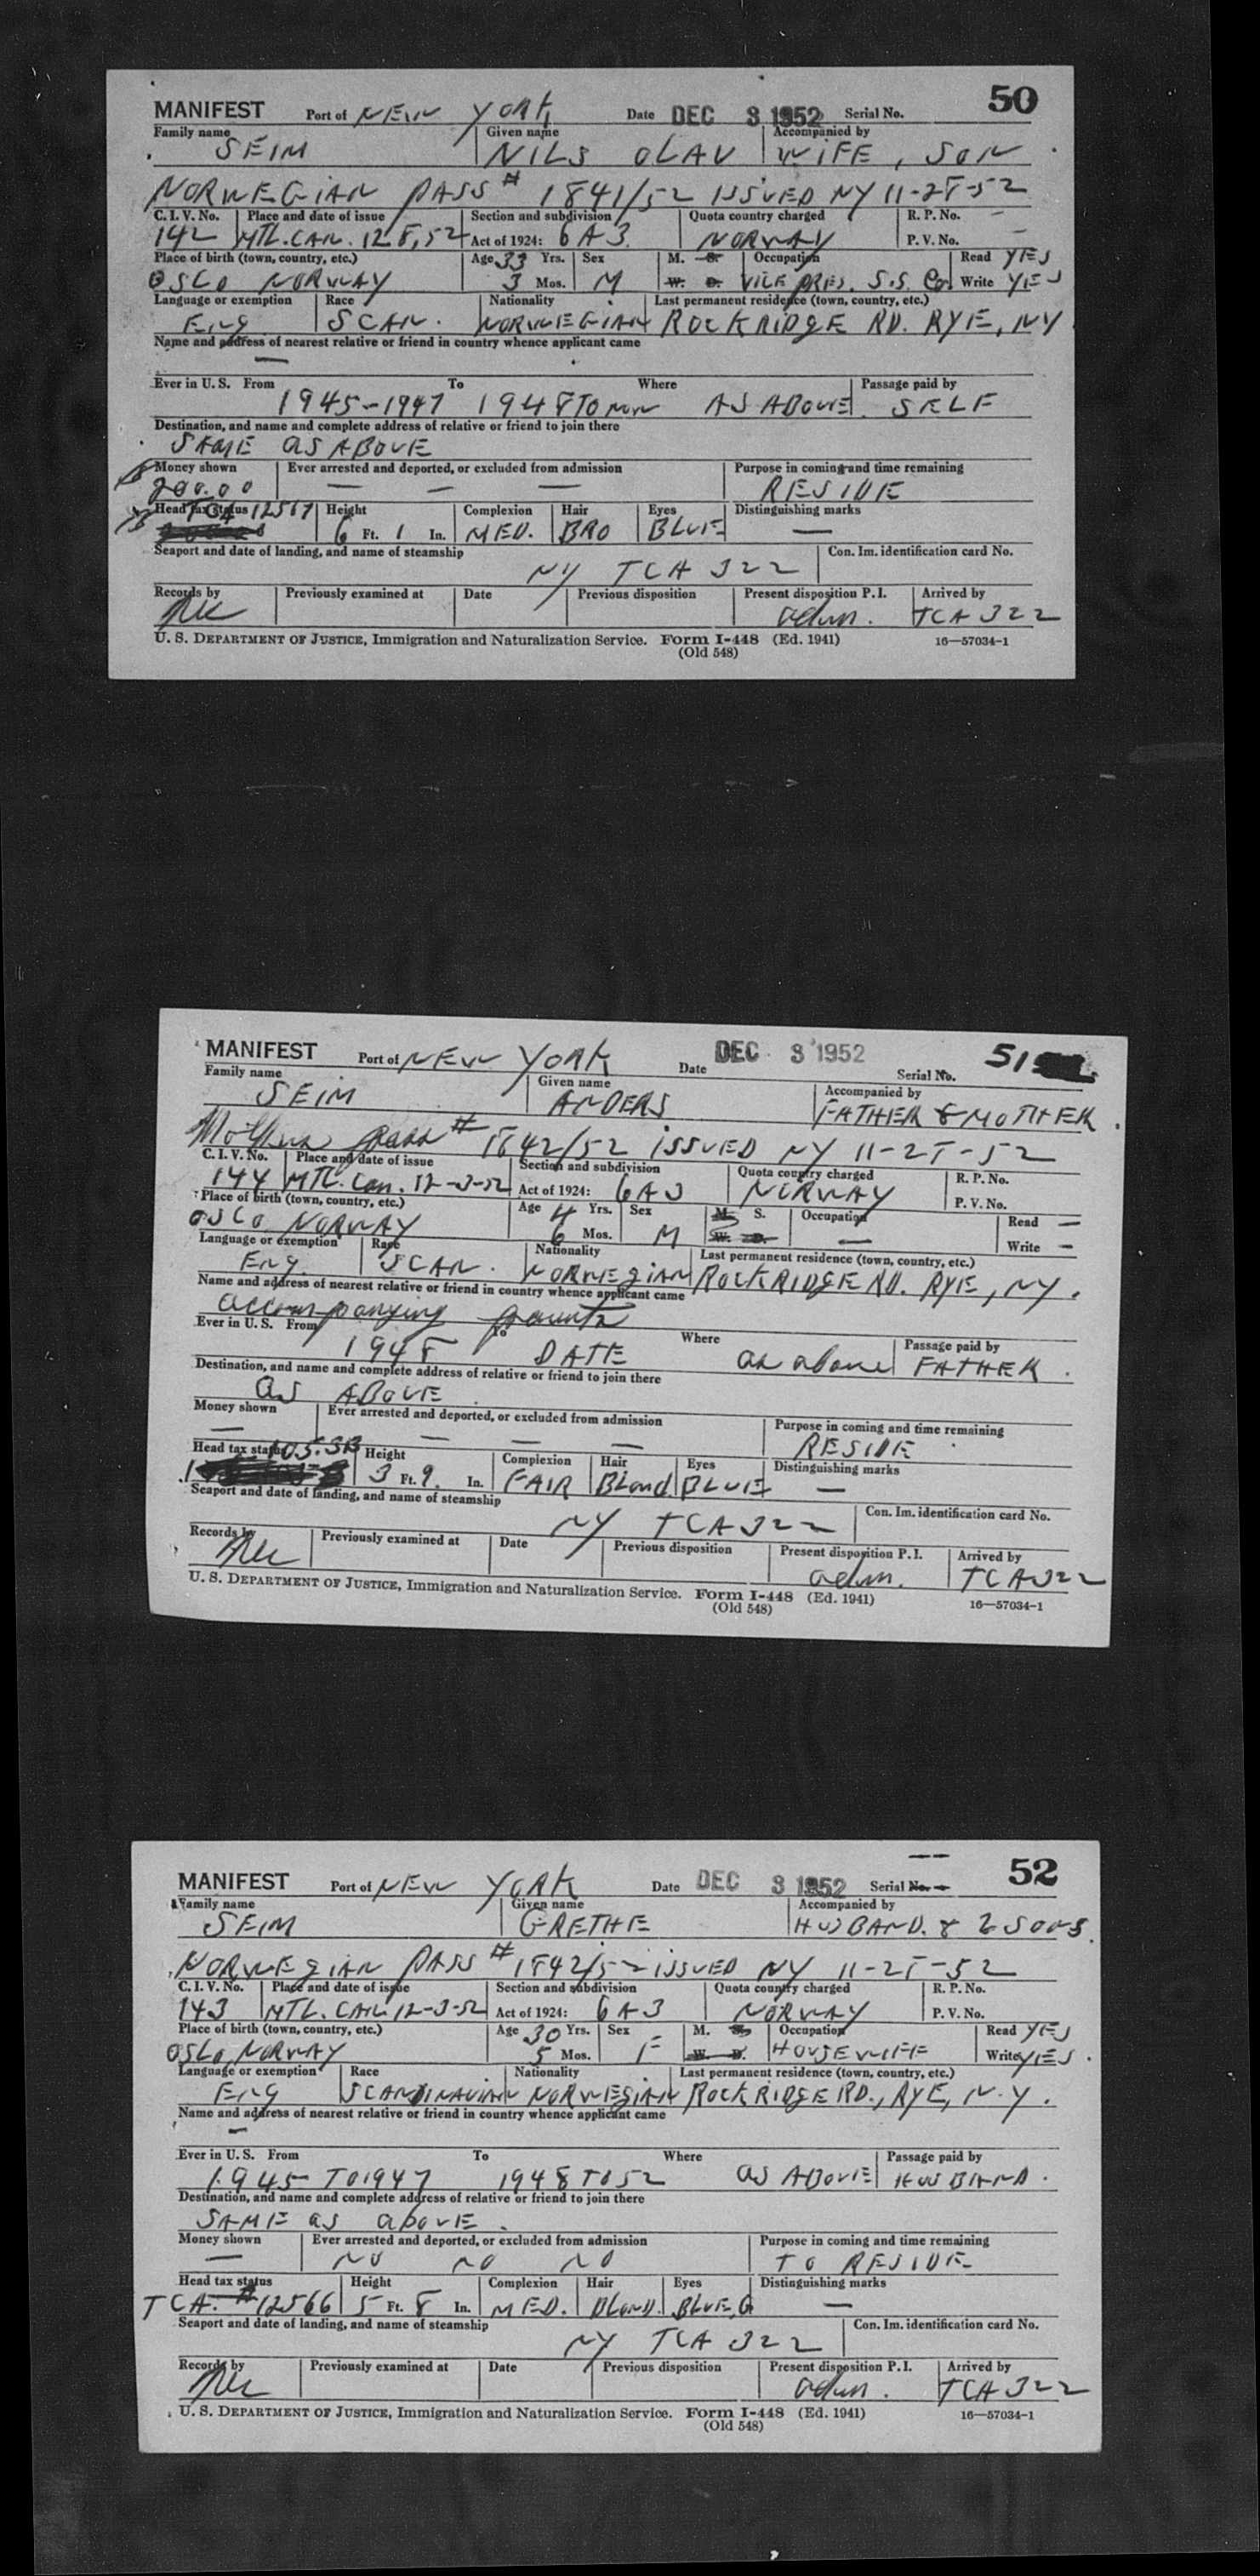 MANIFEST Port of NEW YORK Date DEC 3 1952 Serial No. 50
Family name Given name Accompanied by
SEIM NILS OLAV WIFE, SON
NORWEGIAN PASS # 1841/52 ISSUED NY 11-28-52
C. I. V. No. Place and date of issue Section and subdivision Quota country charged R. P. No. —
142 MTL. CAN. 12 8, 52 Act of 1924: 6 A 3. NORWAY P. V. No. —
Place of birth (town, country, etc.) Age 33 Yrs. Sex M. S. Occupation Read YES
OSLO NORWAY 3 Mos. M W. D. VICE PRES. S.S. Co. Write YES
Language or exemption Race Nationality Last permanent residence (town, country, etc.)
ENG SCAN. NORWEGIAN ROCKRIDGE RD. RYE, NY
Name and address of nearest relative or friend in country whence applicant came
—
Ever in U. S. From To Where Passage paid by
1945-1947 1948 TO NOW AS ABOVE SELF
Destination, and name and complete address of relative or friend to join there
SAME AS ABOVE
Money shown Ever arrested and deported, or excluded from admission Purpose in coming and time remaining
200.00 — — — RESIDE
Head tax status TCA 12567 Height Complexion Hair Eyes Distinguishing marks
6 Ft. 1 In. MED. BRO BLUE —
Seaport and date of landing, and name of steamship Con. Im. identification card No.
NY TCA 322
Records by Previously examined at Date Previous disposition Present disposition P. I. Arrived by
adm. TCA 322
U. S. DEPARTMENT OF JUSTICE, Immigration and Naturalization Service. Form I-448 (Ed. 1941) 16—57034-1
(Old 548)
MANIFEST Port of NEW YORK Date DEC 3 1952 Serial No. 51
Family name Given name Accompanied by
SEIM ANDERS FATHER & MOTHER
Mothers pass # 1842/52 ISSUED NY 11-28-52
C. I. V. No. Place and date of issue Section and subdivision Quota country charged R. P. No.
144 MTL. Can. 12-3-52 Act of 1924: 6 A 3 NORWAY P. V. No.
Place of birth (town, country, etc.) Age 4 Yrs. Sex M. S. Occupation Read —
OSLO NORWAY 6 Mos. M W. D. — Write —
Language or exemption Race Nationality Last permanent residence (town, country, etc.)
ENG. SCAN. NORWEGIAN ROCKRIDGE RD. RYE, NY.
Name and address of nearest relative or friend in country whence applicant came
accompanying parents
Ever in U. S. From To Where Passage paid by
1948 DATE as above FATHER.
Destination, and name and complete address of relative or friend to join there
AS ABOVE
Money shown Ever arrested and deported, or excluded from admission Purpose in coming and time remaining
— — — — RESIDE
Head tax status 105.3B Height Complexion Hair Eyes Distinguishing marks
3 Ft. 9. In. FAIR Blond BLUE —
Seaport and date of landing, and name of steamship Con. Im. identification card No.
NY TCA 322
Records by Previously examined at Date Previous disposition Present disposition P. I. Arrived by
adm. TCA 322
U. S. DEPARTMENT OF JUSTICE, Immigration and Naturalization Service. Form I-448 (Ed. 1941) 16—57034-1
(Old 548)
MANIFEST Port of NEW YORK Date DEC 3 1952 Serial No. 52
Family name Given name Accompanied by
SEIM GRETHE HUSBAND. & 2 SONS.
NORWEGIAN PASS # 1842/52 ISSUED NY 11-28-52
C. I. V. No. Place and date of issue Section and subdivision Quota country charged R. P. No.
143 MTL. CAN. 12-3-52 Act of 1924: 6 A 3 NORWAY P. V. No.
Place of birth (town, country, etc.) Age 30 Yrs. Sex M. S. Occupation Read YES
OSLO, NORWAY 5 Mos. F W. D. HOUSEWIFE Write YES.
Language or exemption Race Nationality Last permanent residence (town, country, etc.)
ENG SCANDINAVIAN NORWEGIAN ROCKRIDGE RD., RYE, N.Y.
Name and address of nearest relative or friend in country whence applicant came
—
Ever in U. S. From To Where Passage paid by
1945 TO 1947 1948 TO 52 AS ABOVE HUSBAND.
Destination, and name and complete address of relative or friend to join there
SAME as above.
Money shown Ever arrested and deported, or excluded from admission Purpose in coming and time remaining
— NO NO NO TO RESIDE
Head tax status Height Complexion Hair Eyes Distinguishing marks
TCA. # 12566 5 Ft. 8 In. MED. BLOND. BLUE, G —
Seaport and date of landing, and name of steamship Con. Im. identification card No.
NY TCA 322
Records by Previously examined at Date Previous disposition Present disposition P. I. Arrived by
adm. TCA 322
U. S. DEPARTMENT OF JUSTICE, Immigration and Naturalization Service. Form I-448 (Ed. 1941) 16—57034-1
(Old 548)